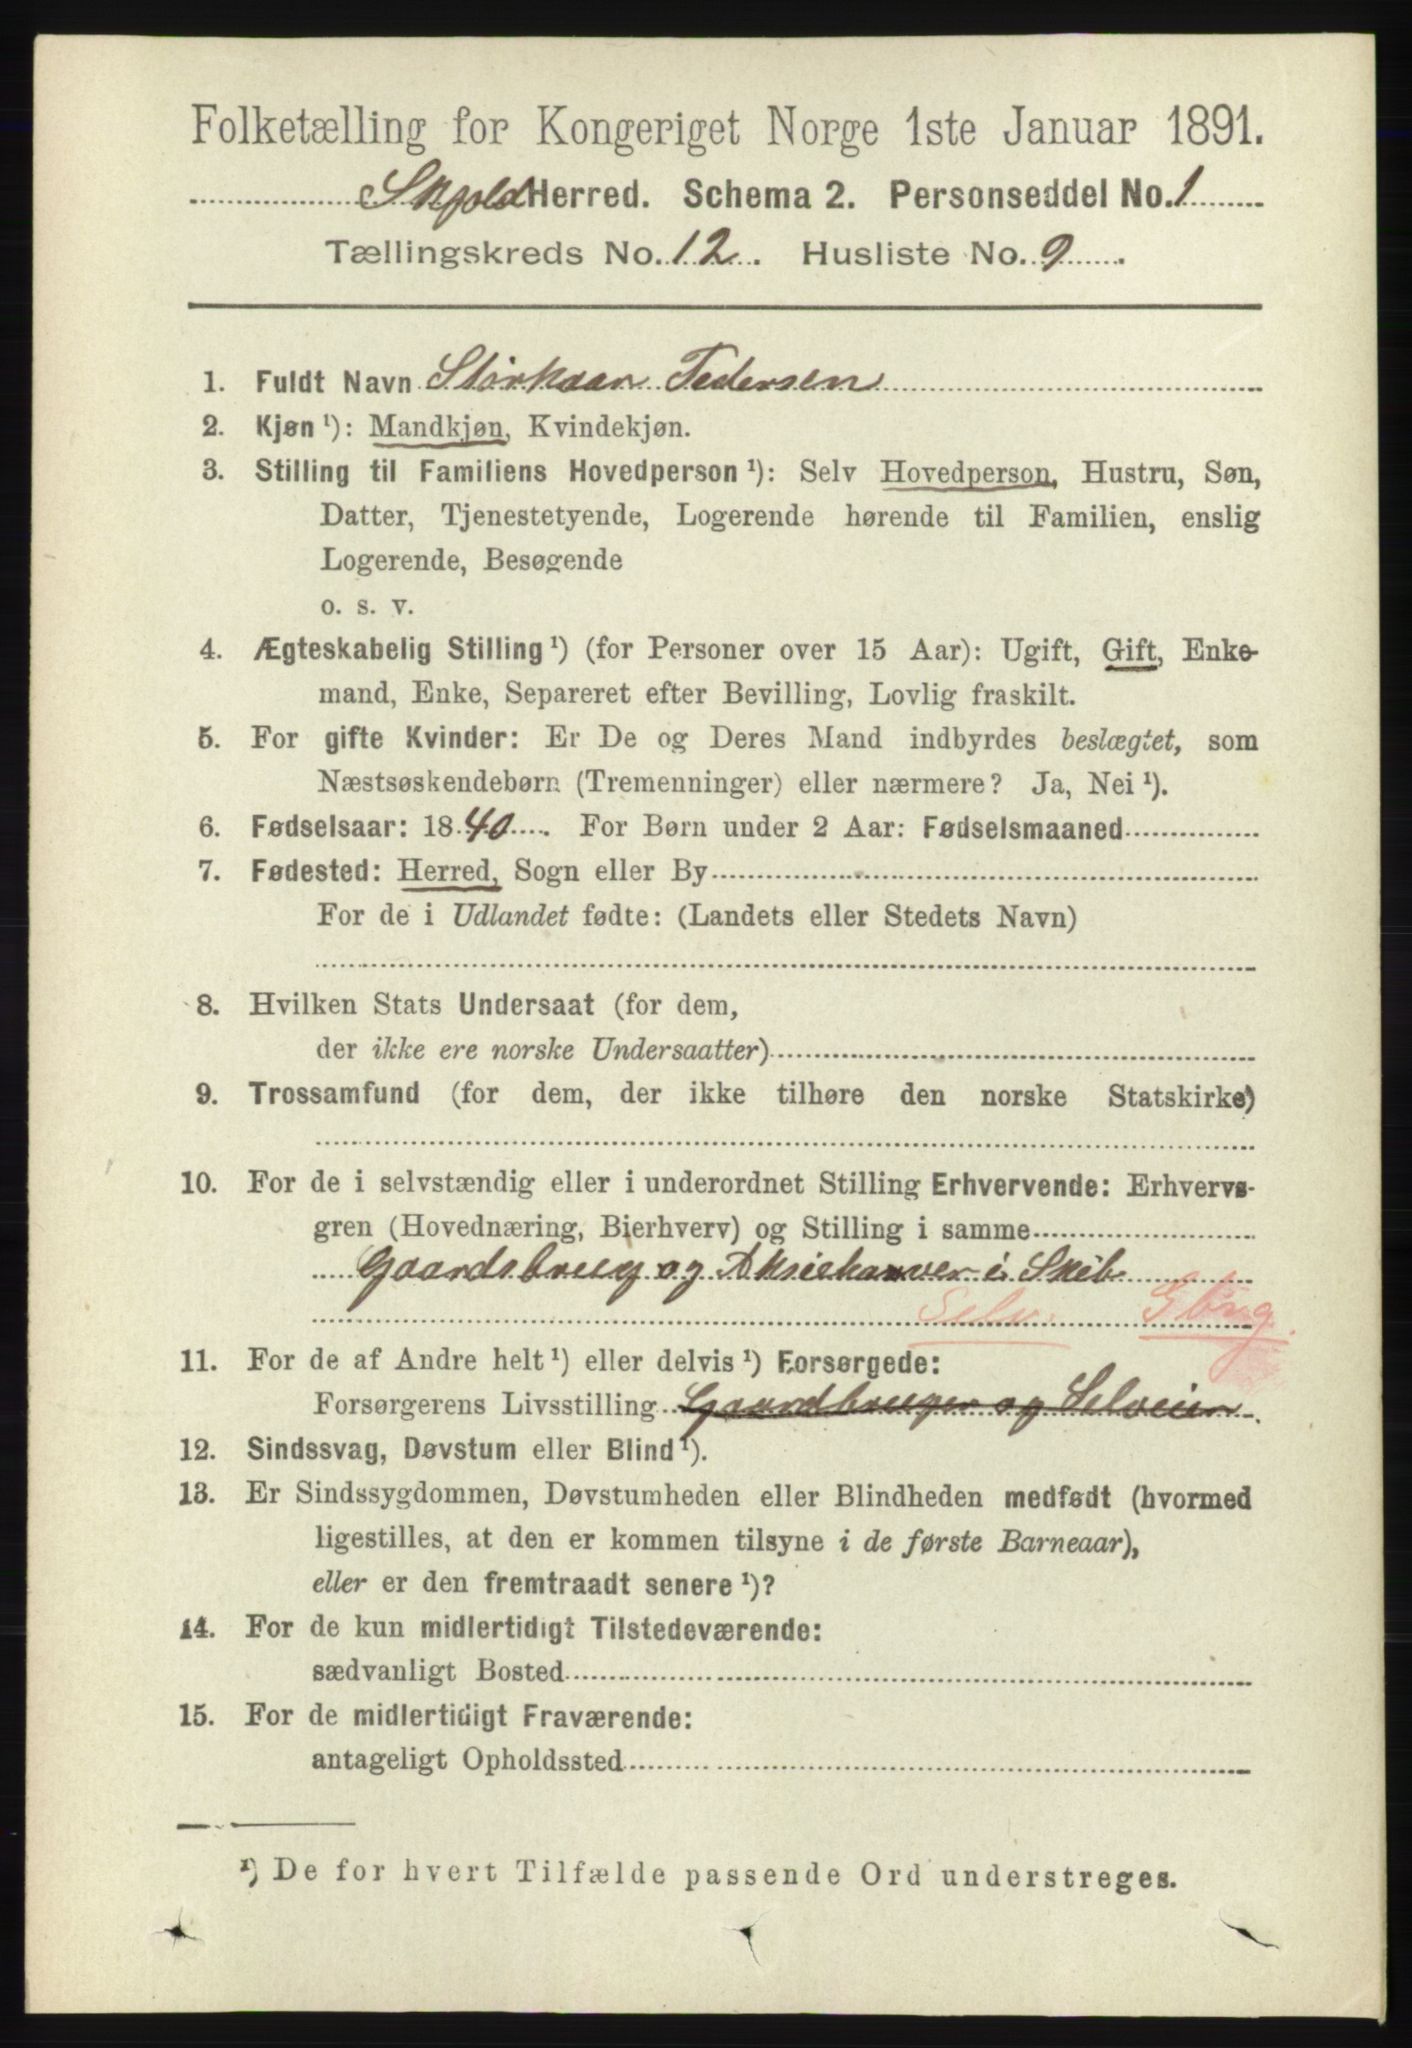 Folketælling for Kongeriget Norge 1ste Januar 1891.
Skjold Herred. Schema 2. Personseddel No. 1
Tællingskreds No. 12. Husliste No. 9
1. Fuldt Navn Störkaar Pedersen
2. Kjøn ¹): Mandkjøn, Kvindekjøn.
3. Stilling til Familiens Hovedperson ¹): Selv Hovedperson, Hustru, Søn,
Datter, Tjenestetyende, Logerende hørende til Familien, enslig
Logerende, Besøgende
o. s. v.
4. Ægteskabelig Stilling ¹) (for Personer over 15 Aar): Ugift, Gift, Enke-
mand, Enke, Separeret efter Bevilling, Lovlig fraskilt.
5. For gifte Kvinder: Er De og Deres Mand indbyrdes beslægtet, som
Næstsøskendebørn (Tremenninger) eller nærmere? Ja, Nei ¹).
6. Fødselsaar: 1840. For Børn under 2 Aar: Fødselsmaaned
7. Fødested: Herred, Sogn eller By
For de i Udlandet fødte: (Landets eller Stedets Navn)
8. Hvilken Stats Undersaat (for dem,
der ikke ere norske Undersaatter)
9. Trossamfund (for dem, der ikke tilhøre den norske Statskirke)
10. For de i selvstændig eller i underordnet Stilling Erhvervende: Erhvervs-
gren (Hovednæring, Bierhverv) og Stilling i samme
Gaardsbrug og Aksiehaver i Skib
Selv. Gbrug.
11. For de af Andre helt ¹) eller delvis ¹) Forsørgede:
Forsørgerens Livsstilling Gaardbruger og Selveier.
12. Sindssvag, Døvstum eller Blind ¹).
13. Er Sindssygdommen, Døvstumheden eller Blindheden medfødt (hvormed
ligestilles, at den er kommen tilsyne i de første Barneaar),
eller er den fremtraadt senere ¹)?
14. For de kun midlertidigt Tilstedeværende:
sædvanligt Bosted
15. For de midlertidigt Fraværende:
antageligt Opholdssted
¹) De for hvert Tilfælde passende Ord understreges.